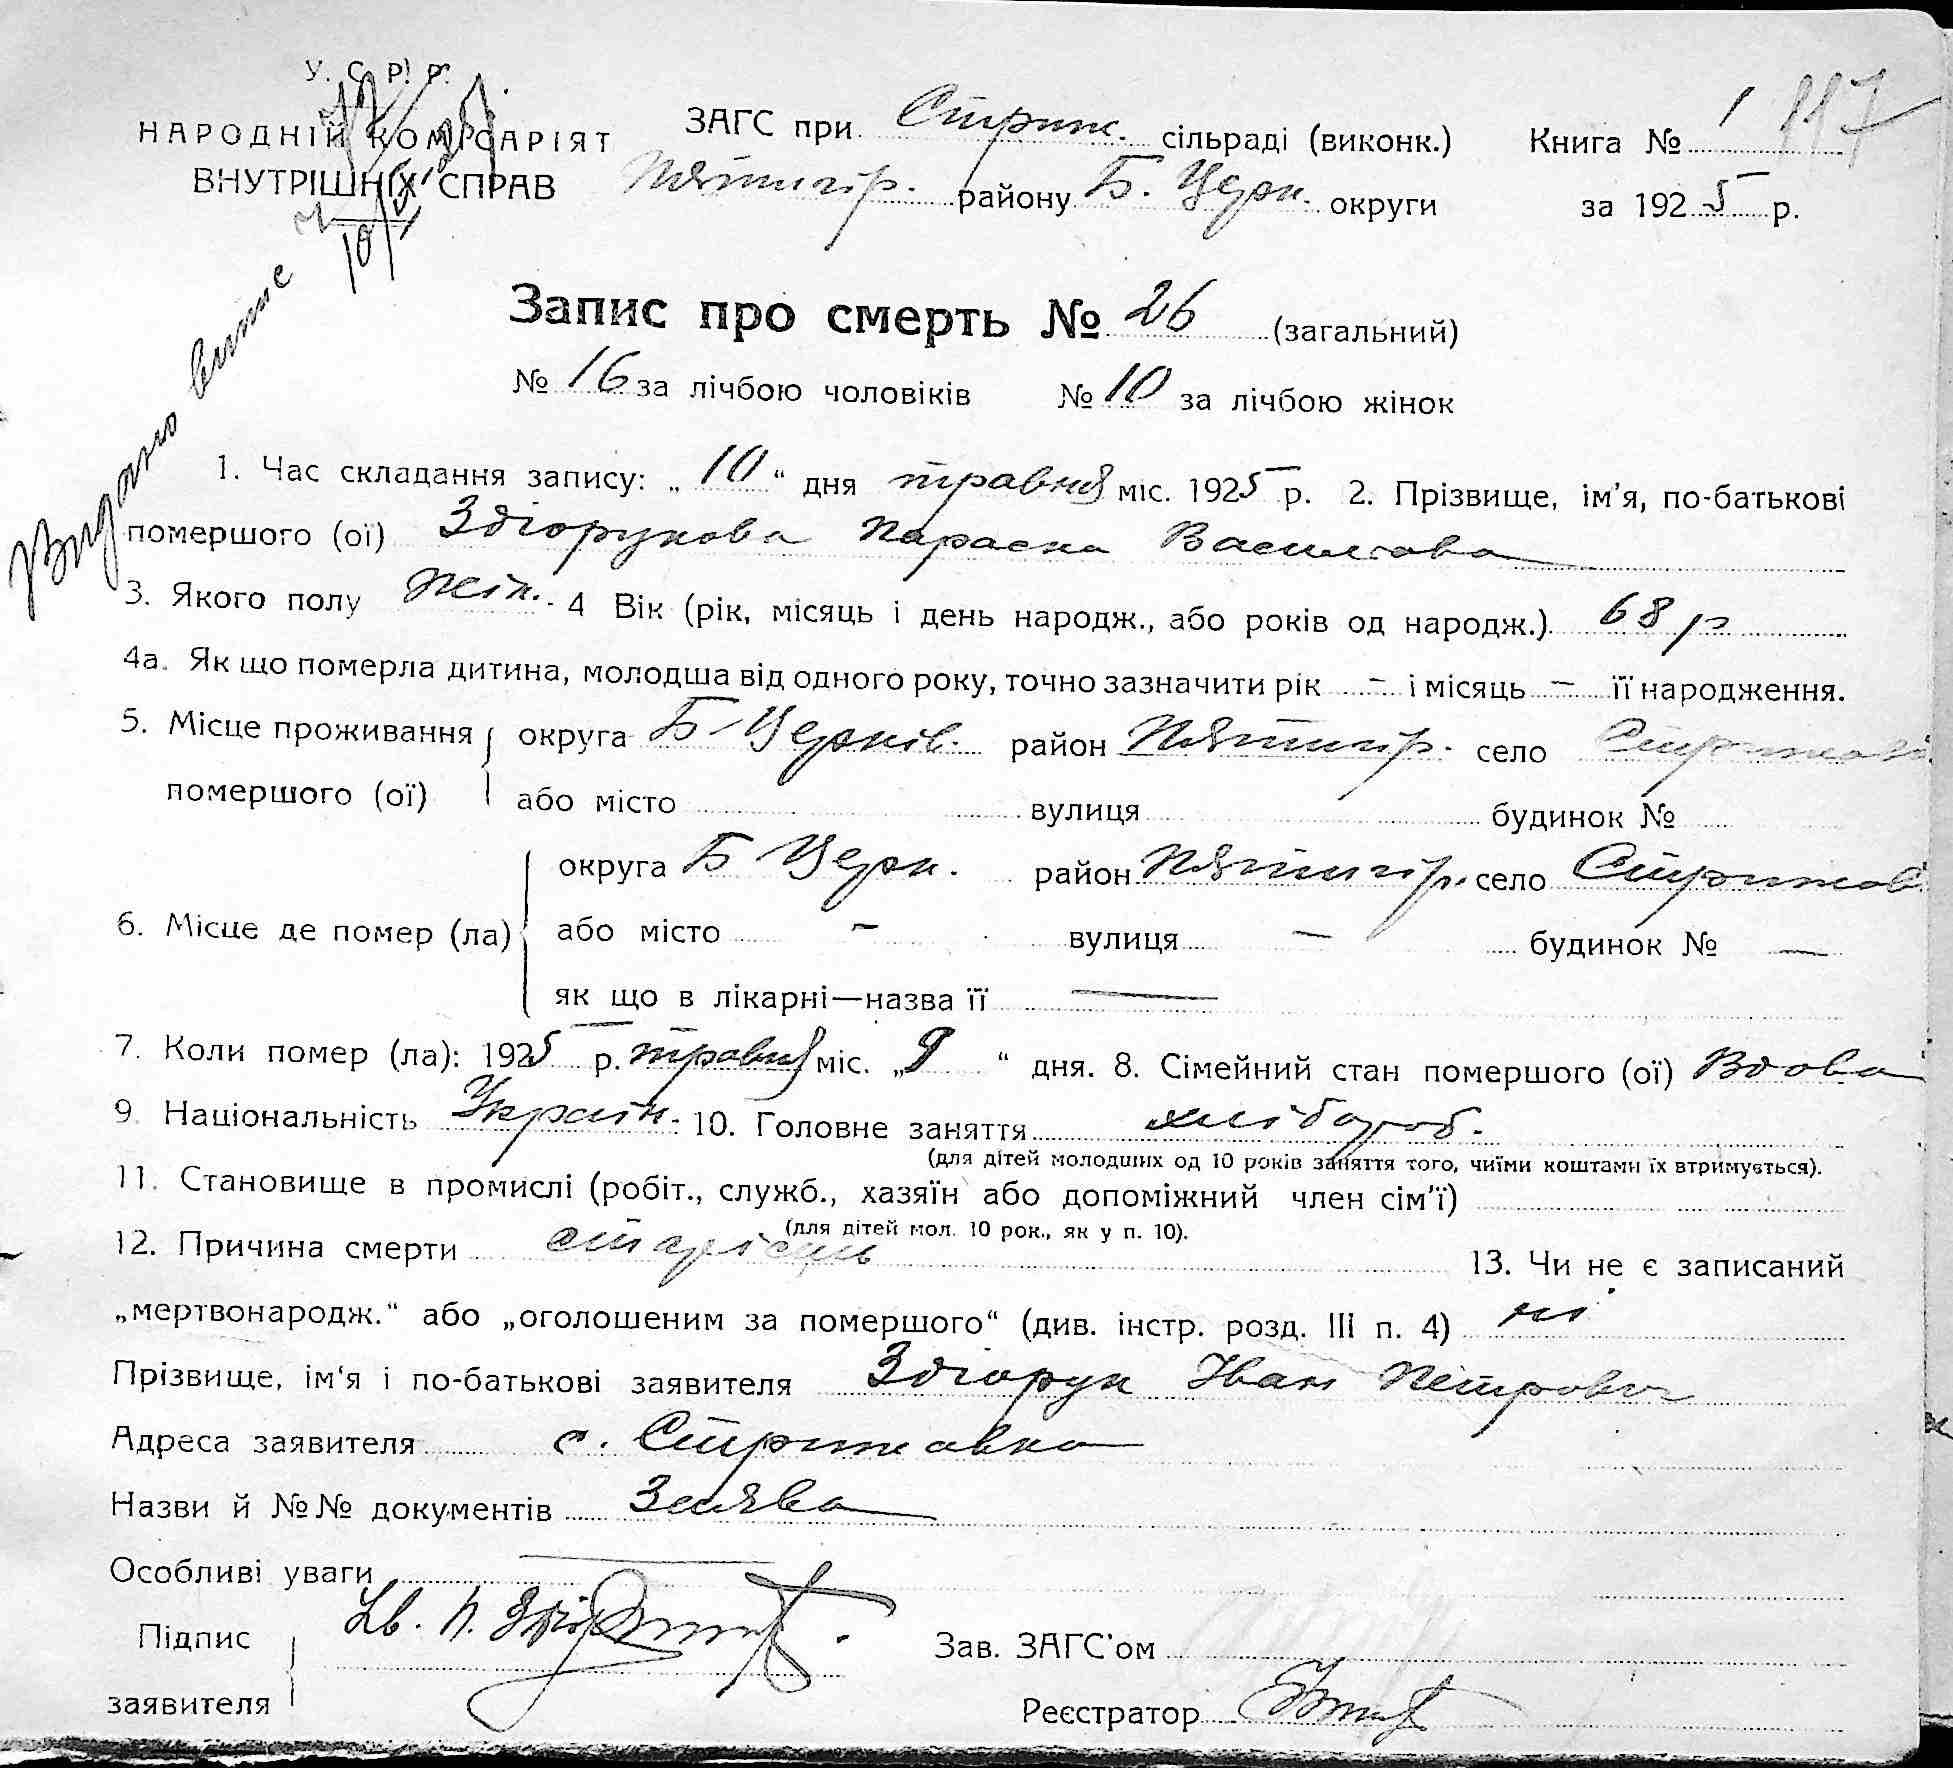 У. С. Р. Р.
НАРОДНІЙ КОМІСАРІЯТ
ВНУТРІШНІХ СПРАВ
ЗАГС при Стриж. сільраді (виконк.)
Пятигір. району Б. Церк. округи
Книга № 1 117
за 1925 р.
Видано витяг
Запис про смерть № 26 (загальний)
№ 16 за лічбою чоловіків № 10 за лічбою жінок
1. Час складання запису: „10“ дня травня міс. 1925 р. 2. Прізвище, ім'я, по-батькові
помершого (ої) Здіорукова Параска Василєва
3. Якого полу жін. 4 Вік (рік, місяць і день народж., або років од народж.). 68 р
4а. Як що померла дитина, молодша від одного року, точно зазначити рік - і місяць - її народження.
5. Місце проживання округа Б Церків. район Пятигір. село Стрижавк
помершого (ої) або місто вулиця будинок №
округа Б Церк. район Пятигір. село Стрижав
6. Місце де помер (ла) або місто - вулиця - будинок № —
як що в лікарні—назва її —
7. Коли помер (ла): 1925 р. травня міс. „9“ дня. 8. Сімейний стан помершого (ої) Вдова
9. Національність Україн. 10. Головне заняття хлібороб.
(для дітей молодших од 10 років заняття того, чиїми коштами їх втримується).
11. Становище в промислі (робіт., служб., хазяїн або допоміжний член сім'ї)
(для дітей мол. 10 рок., як у п. 10).
12. Причина смерти старість 13. Чи не є записаний
„мертвонародж.“ або „оголошеним за помершого“ (див. інстр. розд. III п. 4) ні
Прізвище, ім'я і по-батькові заявителя Здіорук Іван Петрович
Адреса заявителя с. Стрижавка
Назви й №№ документів Заява
Особливі уваги
Підпис
заявителя
Зав. ЗАГС'ом
Реєстратор